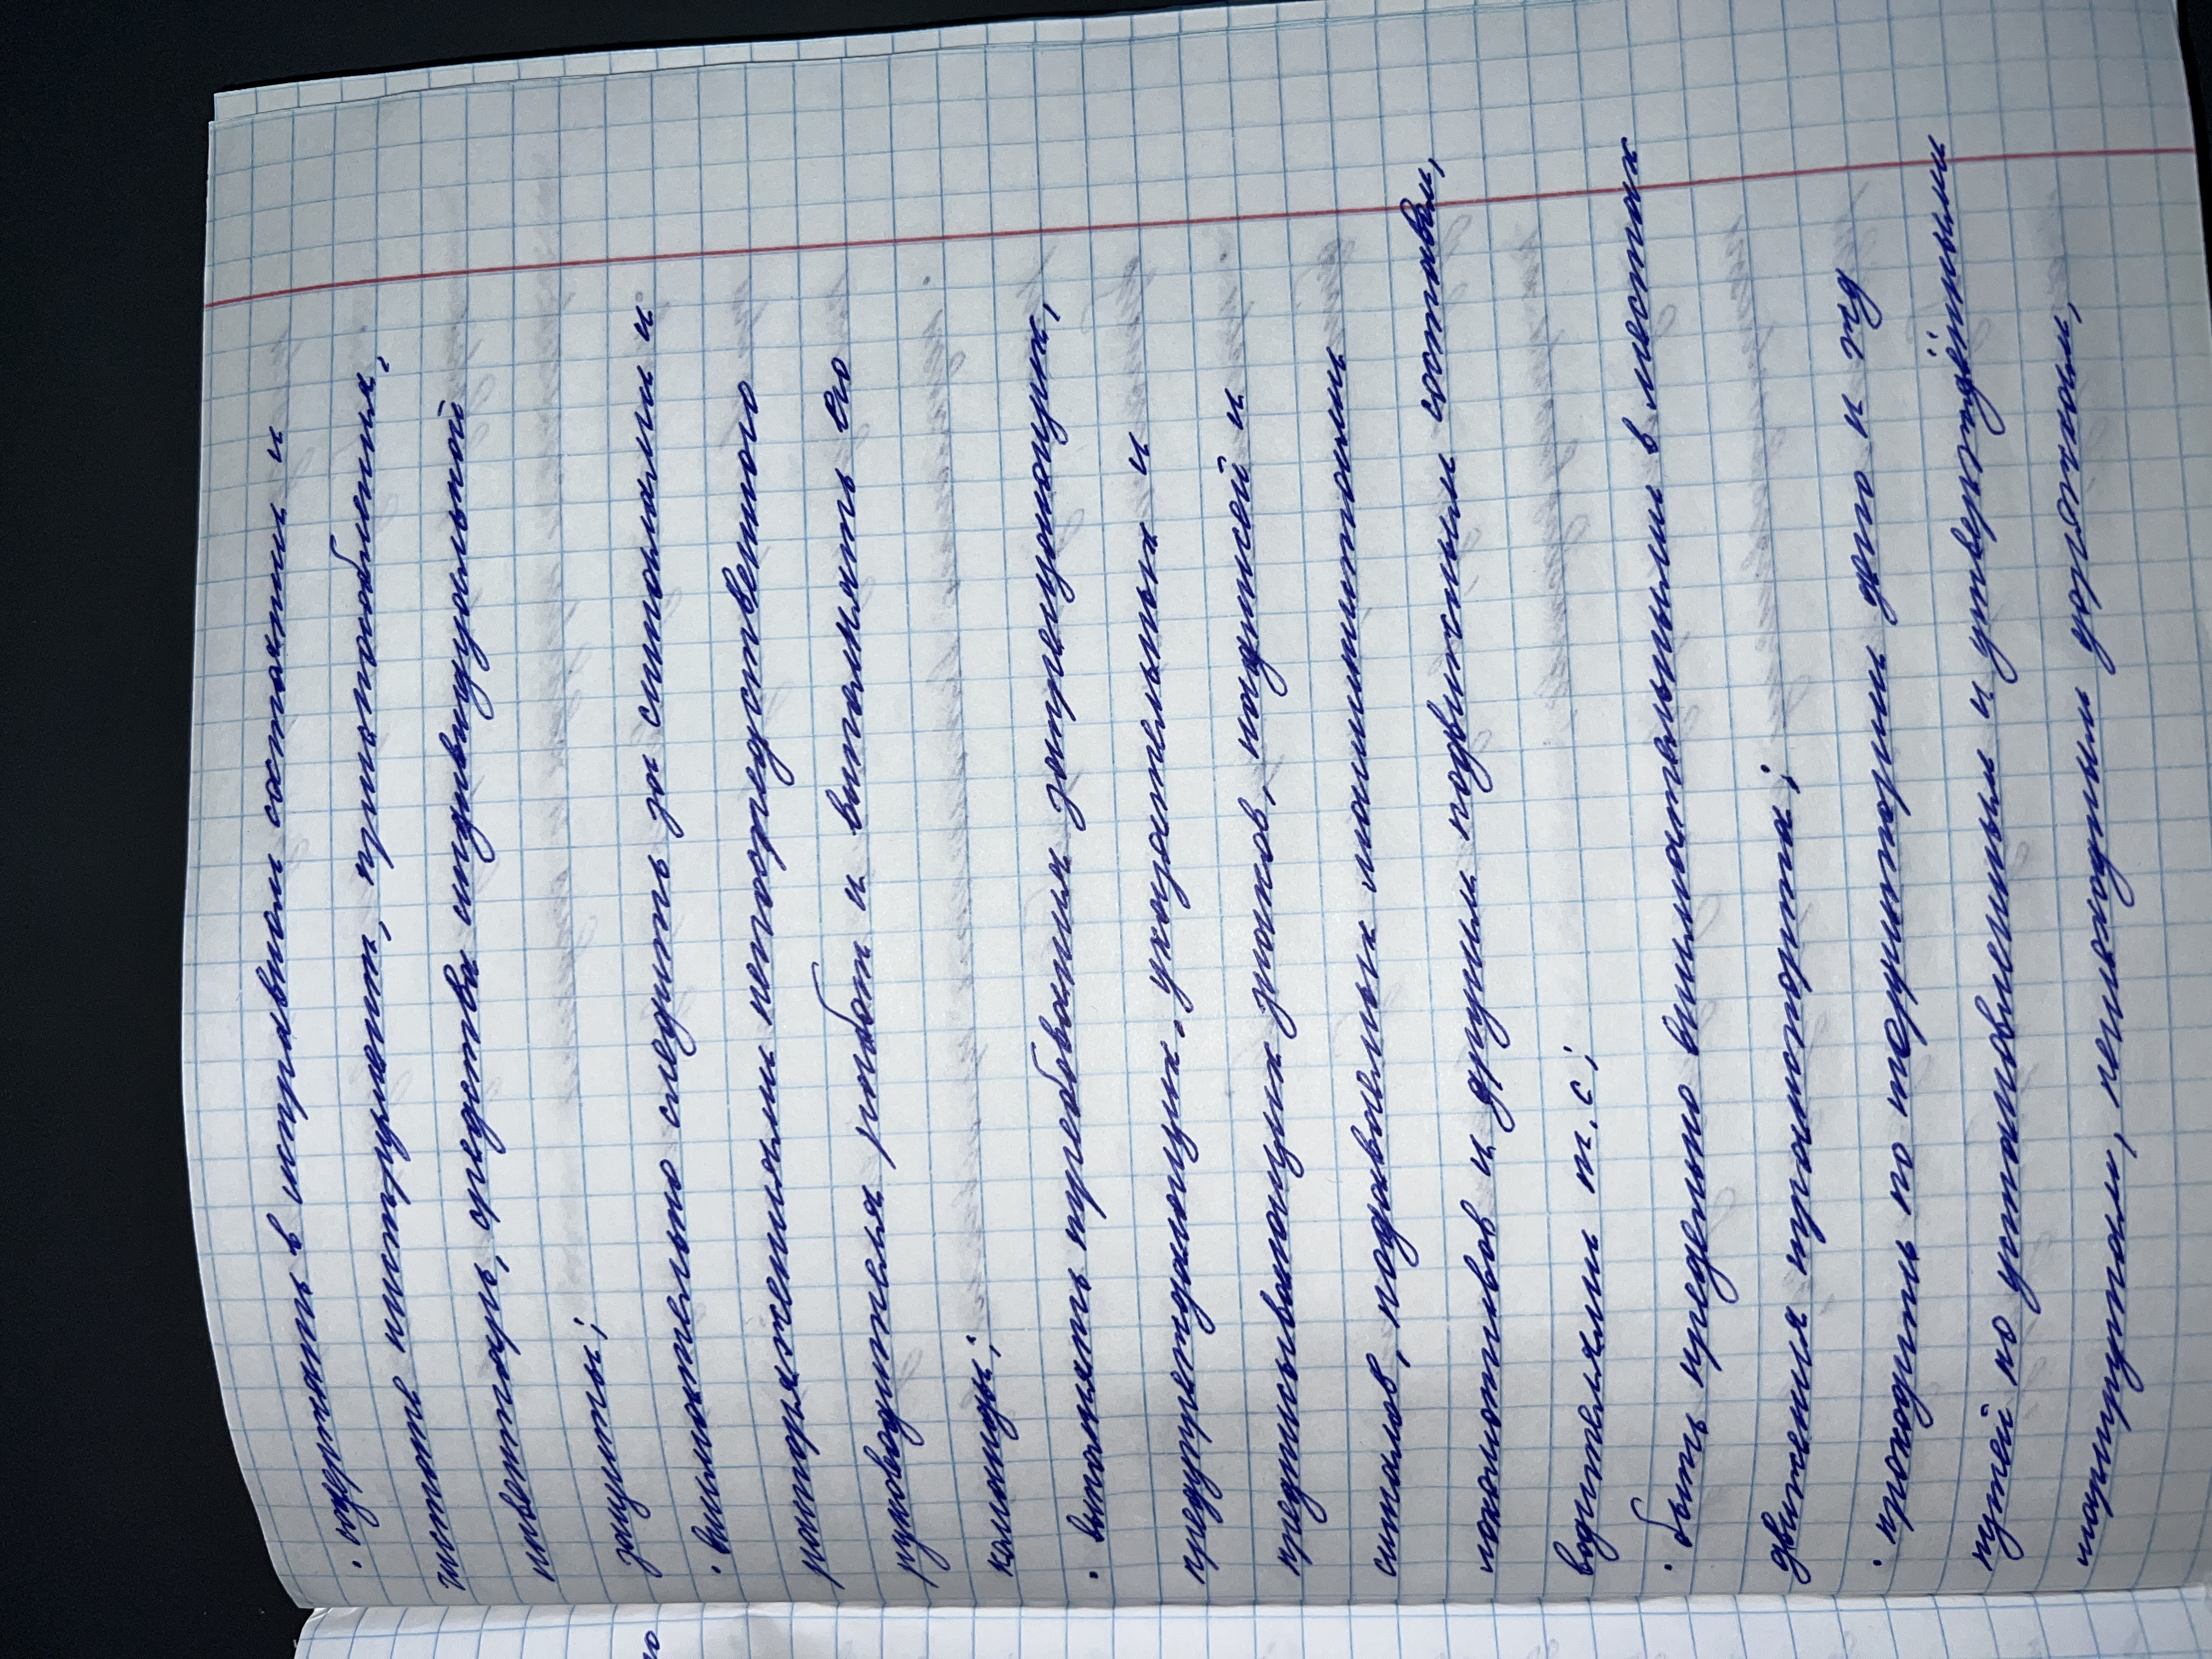 · содержать в исправном состоянии и
чистоте инструмент, приспособления,
инвентарь, средства индивидуальной
защиты;
· внимательно следить за сигналами и
распоряжениями непосредственного
руководителя работ и выполнять его
команды;
· выполнять требования запрещающих,
предупреждающих, указательных и
предписывающих знаков, надписей и
сигналов, подаваемых машинистами
локомотивов и другим подвижным составом,
водителями т.с;
· быть предельно внимательными в местах
движения транспорта;
· проходить по территории депо и жд
путей по установленным и утверждённым
маршрутам, пешеходным дорожкам,